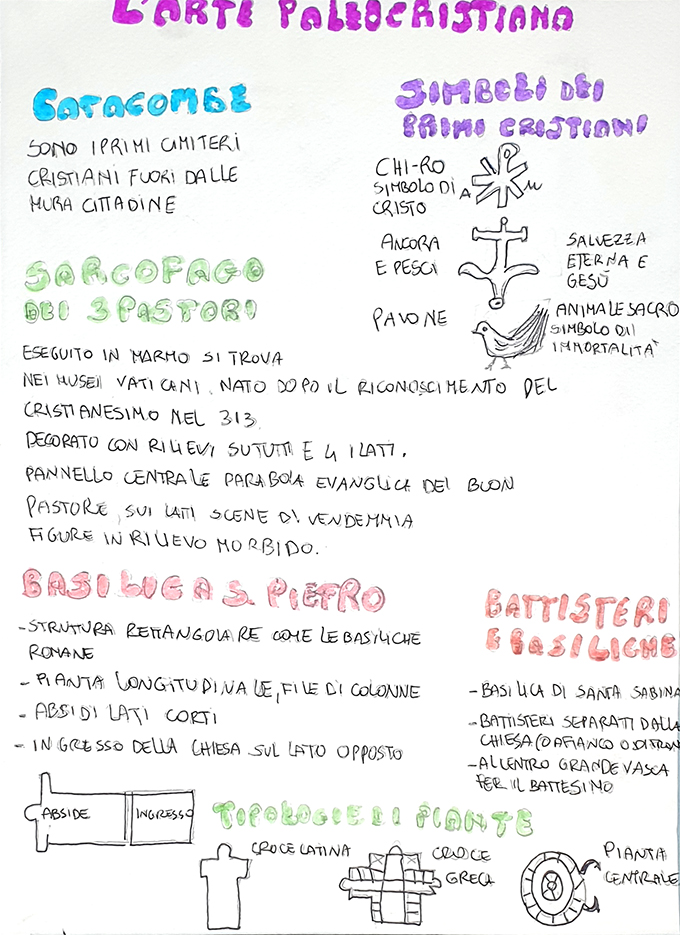 L'ARTE PALEOCRISTIANA
CATACOMBE
SONO I PRIMI CIMITERI
CRISTIANI FUORI DALLE
MURA CITTADINE
SIMBOLI DEI
PRIMI CRISTIANI
CHI-RO
SIMBOLO DI
CRISTO
A
ANCORA
E PESCI
SALVEZZA
ETERNA E
GESÙ
PAVONE
ANIMALE SACRO
SIMBOLO DI
IMMORTALITA'
SARCOFAGO
DEI 3 PASTORI
ESEGUITO IN MARMO SI TROVA
NEI MUSEI VATICANI. NATO DOPO IL RICONOSCIMENTO DEL
CRISTIANESIMO NEL 313.
DECORATO CON RILIEVI SU TUTTI E 4 I LATI.
PANNELLO CENTRALE PARABOLA EVANGLICA DEL BUON
PASTORE, SUI LATI SCENE DI VENDEMMIA
FIGURE IN RILIEVO MORBIDO.
BASILICA S. PIETRO
-STRUTURA RETTANGOLARE COME LE BASILICHE
ROMANE
- PIANTA LONGITUDINALE, FILE DI COLONNE
- ABSIDI LATI CORTI
- INGRESSO DELLA CHIESA SUL LATO OPPOSTO
BATTISTERI
E BASILICHE
- BASILICA DI SANTA SABINA
- BATTISTERI SEPARATI DALLA
CHIESA (O AFIANCO O DI FRON
- AL CENTRO GRANDE VASCA
PER IL BATTESIMO
ABSIDE
INGRESSO
TIPOLOGIE DI PIANTE
CROCE LATINA
CROCE
GRECA
PIANTA
CENTRALE